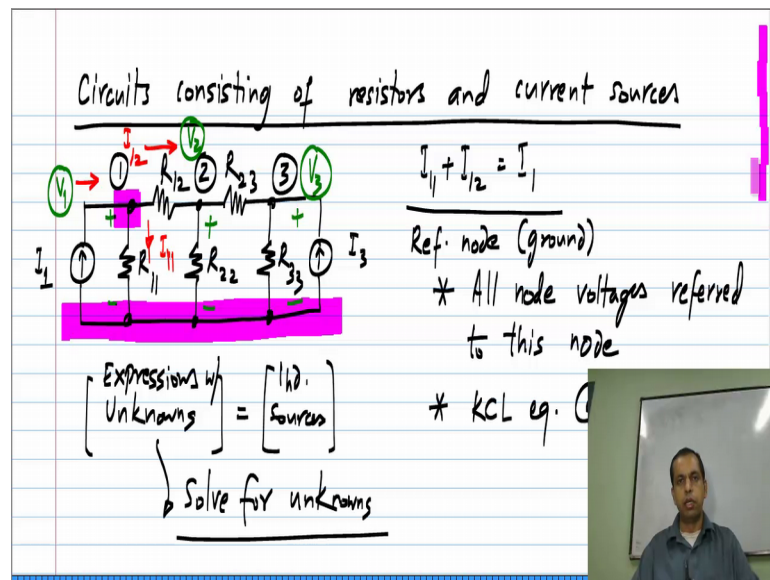 Circuits consisting of resistors and current sources
I12 V2
V1 1 R12 2 R23 3 V3
I11 + I12 = I1
+ + +
I1 R11 I11 R22 R33 I3
- - -
Ref. node (ground)
* All node voltages referred
to this node
* KCL eq.
[Expressions w/
Unknowns] = [Ind.
sources]
Solve for unknowns